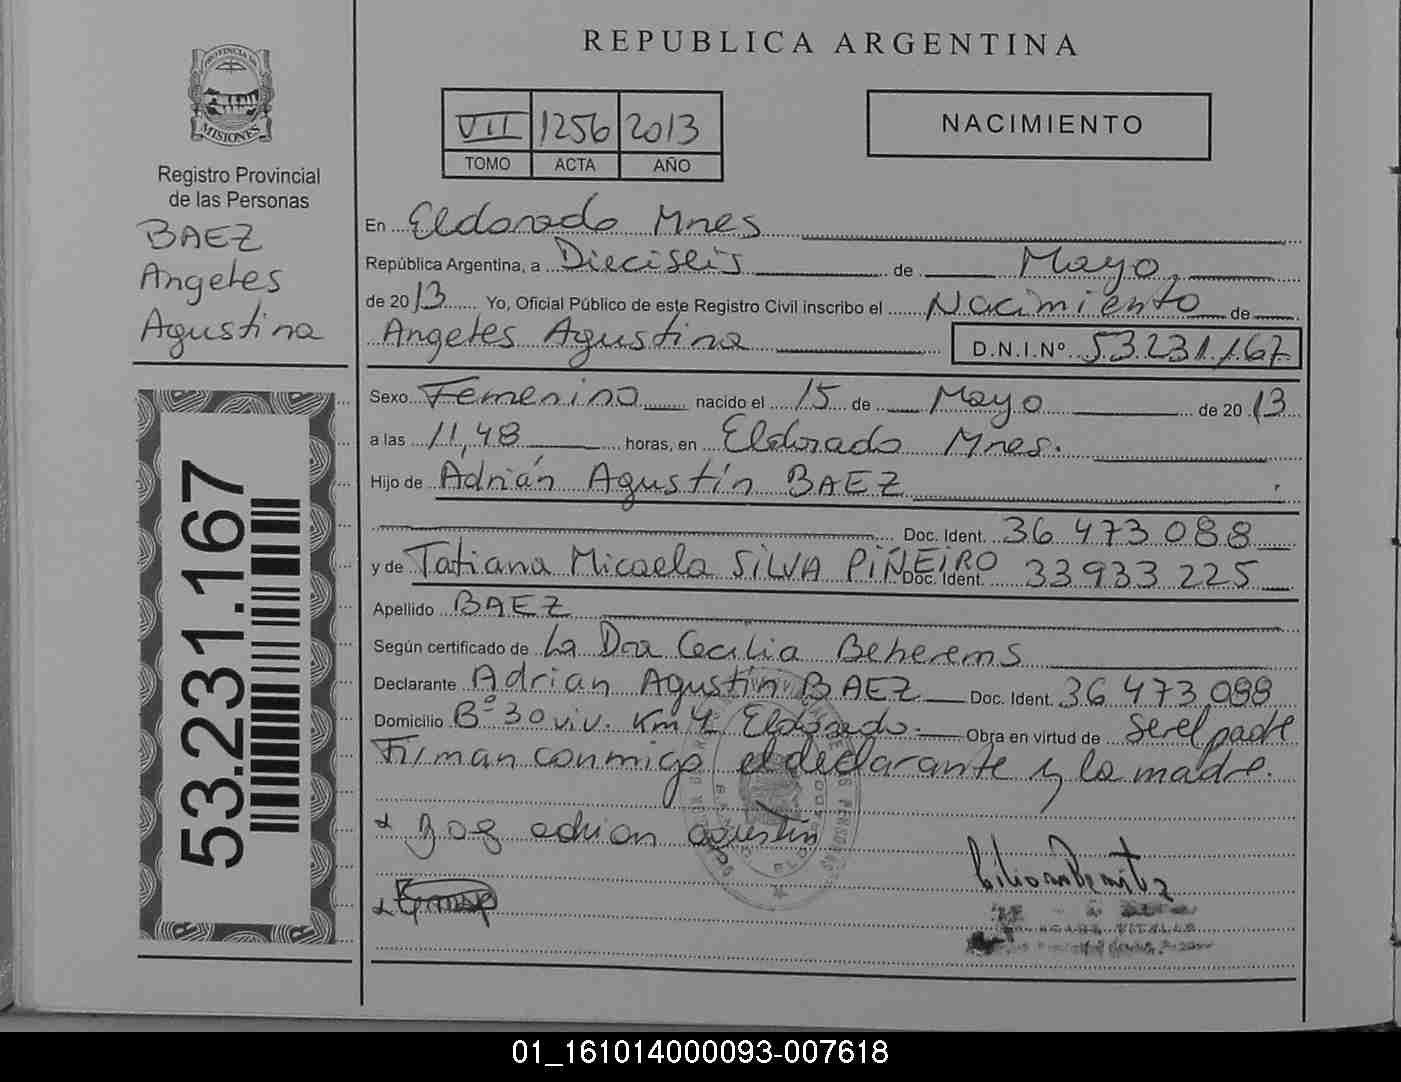 REPUBLICA ARGENTINA
PROVINCIA DE
MISIONES
Registro Provincial
de las Personas
BAEZ
Angeles
Agustina
53.231.167
VII 1256 2013
TOMO ACTA AÑO
NACIMIENTO
En Eldorado Mnes
República Argentina, a Dieciseis de Mayo,
de 2013 Yo, Oficial Público de este Registro Civil inscribo el Nacimiento de
Angeles Agustina D.N.I.Nº 53.231.167
Sexo Femenino nacido el 15 de Mayo de 2013
a las 11,48 horas, en Eldorado Mnes.
Hijo de Adrián Agustín BAEZ
Doc. Ident. 36 473 088
y de Tatiana Micaela SILVA PIÑEIRO Doc. Ident. 33 933 225
Apellido BAEZ
Según certificado de La Dra Cecilia Beherems
Declarante Adrian Agustin BAEZ Doc. Ident. 36 473 088
Domicilio Bº 30 viv. Km 4 Eldorado. Obra en virtud de ser el padre
Firman conmigo el declarante y la madre.
adrian agustin
01_161014000093-007618